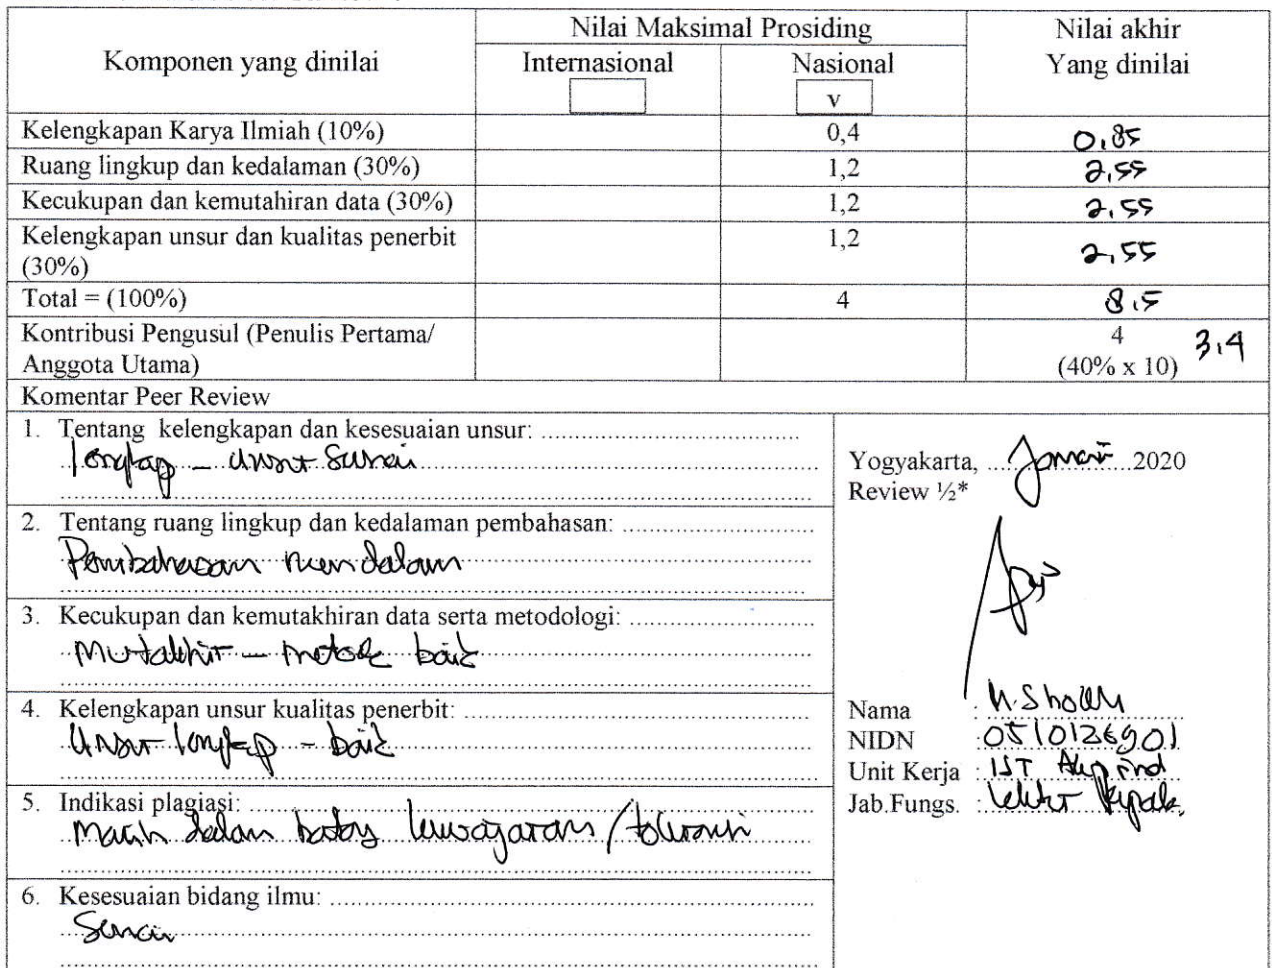 Komponen yang dinilai
Nilai Maksimal Prosiding
Nilai akhir
Yang dinilai
Internasional
Nasional
v
Kelengkapan Karya Ilmiah (10%) 0,4 0,85
Ruang lingkup dan kedalaman (30%) 1,2 2,55
Kecukupan dan kemutahiran data (30%) 1,2 2,55
Kelengkapan unsur dan kualitas penerbit 1,2 2,55
(30%)
Total = (100%) 4 8,5
Kontribusi Pengusul (Penulis Pertama/ 4 3,4
Anggota Utama) (40% x 10)
Komentar Peer Review
1. Tentang kelengkapan dan kesesuaian unsur: ....................................
lengkap – unsur sesuai
2. Tentang ruang lingkup dan kedalaman pembahasan: .........................
Pembahasan mendalam
3. Kecukupan dan kemutakhiran data serta metodologi: ........................
Mutakhir – metode baik
4. Kelengkapan unsur kualitas penerbit: ..............................................
Unsur lengkap – baik
5. Indikasi plagiasi: ..........................................................................
Masih dalam batas kewajaran / toleransi
6. Kesesuaian bidang ilmu: ................................................................
Sesuai
Yogyakarta, .... Januari ....2020
Review ½*
Nama : M. Sholeh
NIDN : 0510126901
Unit Kerja : IST Akprind
Jab.Fungs. : Lektor Kepala